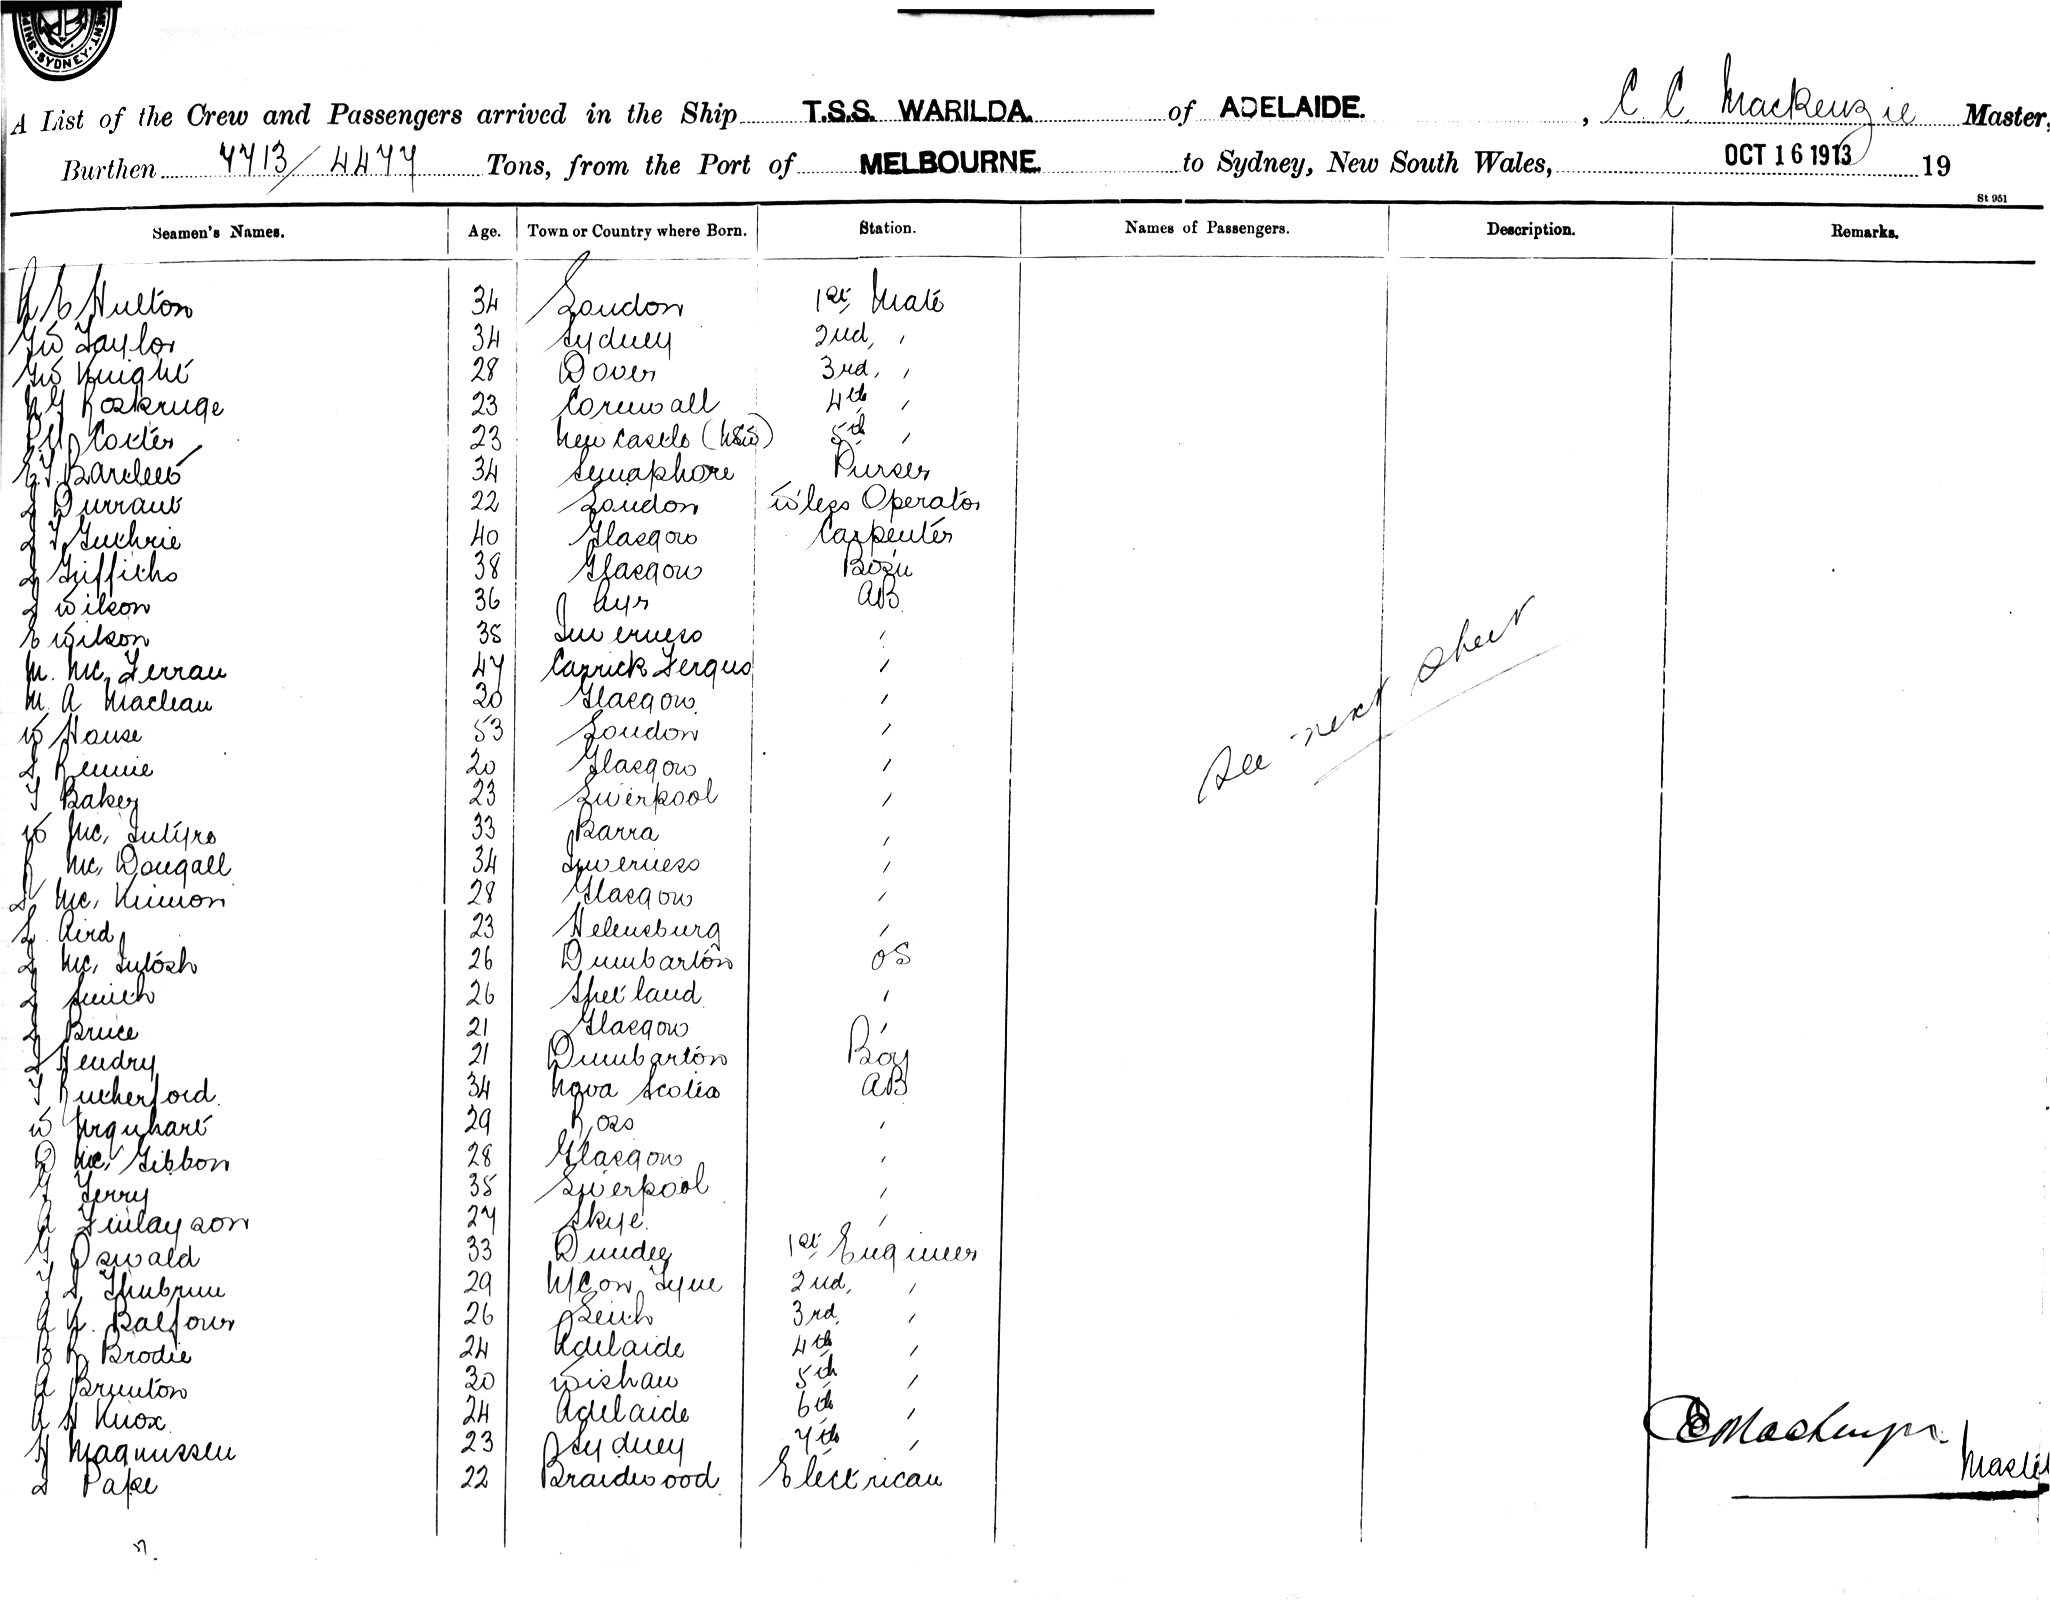 SYDNEY
A List of the Crew and Passengers arrived in the Ship T.S.S. WARILDA. of ADELAIDE. , C. C. Mackenzie Master,
Burthen 7713/4477 Tons, from the Port of MELBOURNE. to Sydney, New South Wales, OCT 16 1913 19
St 951
Seamen's Names. Age. Town or Country where Born. Station. Names of Passengers. Description. Remarks.
A E Hulton 34 London 1st Mate
GW Taylor 34 Sydney 2nd, "
GW Knight 28 Dover 3rd, "
Roskruge 23 Cornwall 4th "
Coxter 23 New Castle (NSW) 5th "
Bardeet 34 Semaphore Purser
J Durrant 22 London W'less Operator
J T Guthrie 40 Glasgow Carpenter
J Griffiths 38 Glasgow Bosn
J Wilson 36 Ayr AB
E Wilson 35 Inverness "
M. Mc, Ferran 47 Carrick Fergus "
M. A Maclean 30 Glasgow "
W House 53 London "
Rennie 20 Glasgow "
T Baker 23 Liverpool "
W Mc, Intyre 33 Barra "
R Mc, Dougall 34 Inverness "
Mc, Kinnon 28 Glasgow "
Aird 23 Helensburg "
J Mc, Intosh 26 Dumbarton OS
J Smith 26 Shetland "
J Bruce 21 Glasgow "
J Hendry 21 Dumbarton Boy
T Rutherford 34 Nova Scotia AB
W Urquhart 29 Ross "
D Mc, Gibbon 28 Glasgow "
G Terry 35 Liverpool "
A Finlayson 27 Skye "
G Oswald 33 Dundee 1st Engineer
T S, Thubrun 29 N/C on Tyne 2nd, "
A N. Balfour 26 Leith 3rd "
B R Brodie 24 Adelaide 4th "
A Brunton 30 Wishaw 5th "
A H Knox 24 Adelaide 6th "
H Magnussen 23 Sydney 7th "
Pape 22 Braidwood Electrican
See next sheet
CC Mackenzie
Master